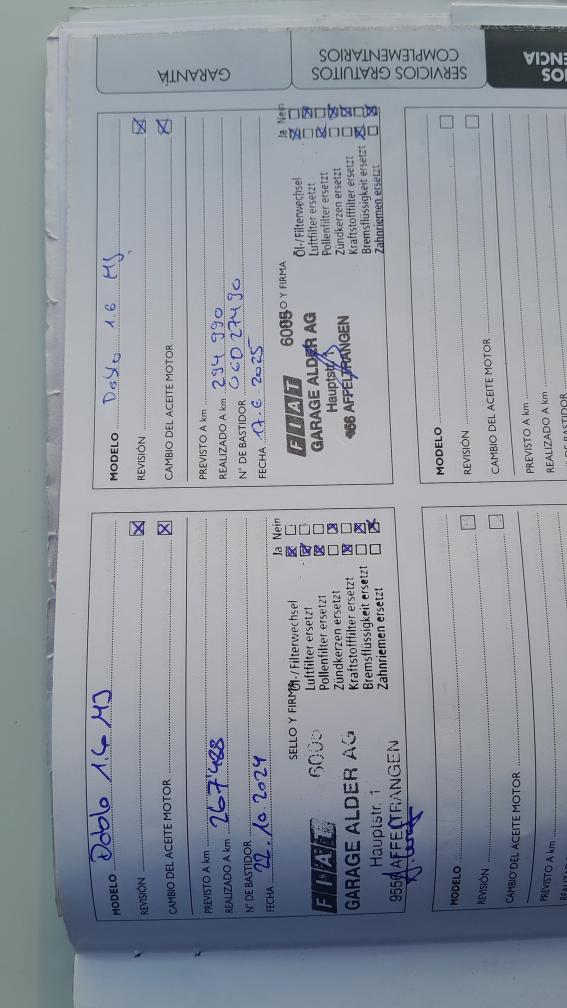 GARANTÍA
SERVICIOS GRATUITOS
COMPLEMENTARIOS
MODELO Doblo 1.6 MJ
REVISIÓN
CAMBIO DEL ACEITE MOTOR
PREVISTO A km
REALIZADO A km 267'488
N° DE BASTIDOR
FECHA 22.10.2024
SELLO Y FIRMA
FIAT
GARAGE ALDER AG
Hauptstr. 1
AFFELTRANGEN
Ja Nein
Öl-/Filterwechsel
Luftfilter ersetzt
Pollenfilter ersetzt
Zündkerzen ersetzt
Kraftstofffilter ersetzt
Bremsflüssigkeit ersetzt
Zahnriemen ersetzt
MODELO Doblo 1.6 MJ
REVISIÓN
CAMBIO DEL ACEITE MOTOR
PREVISTO A km
REALIZADO A km 294 990
N° DE BASTIDOR 06D27490
FECHA 17.6.2025
FIRMA
FIAT
GARAGE ALDER AG
Hauptstr. 1
AFFELTRANGEN
Ja Nein
Öl-/Filterwechsel
Luftfilter ersetzt
Pollenfilter ersetzt
Zündkerzen ersetzt
Kraftstofffilter ersetzt
Bremsflüssigkeit ersetzt
Zahnriemen ersetzt
MODELO
REVISIÓN
CAMBIO DEL ACEITE MOTOR
PREVISTO A km
MODELO
REVISIÓN
CAMBIO DEL ACEITE MOTOR
PREVISTO A km
REALIZADO A km